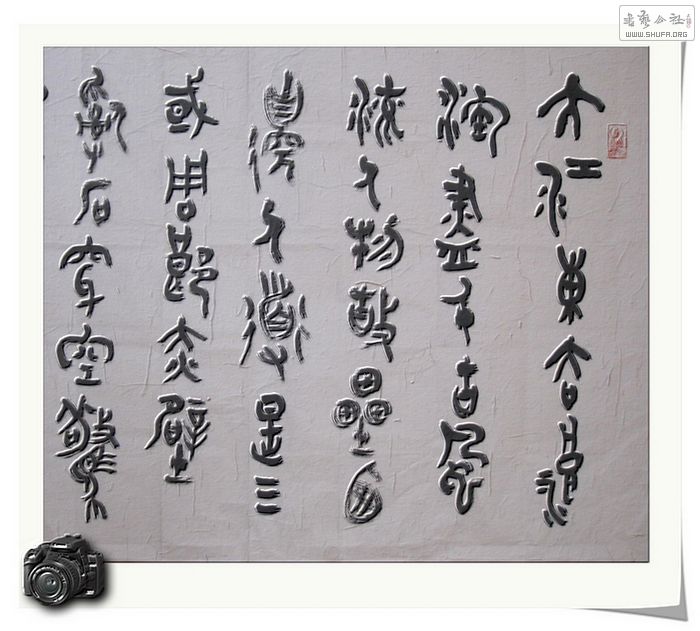 大江東去浪
淘盡千古風
流人物故壘西
邊人道是三
或周郎赤壁
亂石穿空驚
書藝公社
WWW.SHUFA.ORG